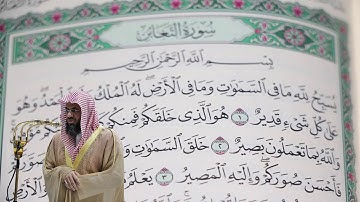 سُورَةُ التَّغَابُنِ
بِسْمِ اللَّهِ الرَّحْمَٰنِ الرَّحِيمِ
يُسَبِّحُ لِلَّهِ مَا فِي السَّمَٰوَٰتِ وَمَا فِي الْأَرْضِ لَهُ الْمُلْكُ وَلَهُ الْحَمْدُ وَهُوَ
عَلَىٰ كُلِّ شَيْءٍ قَدِيرٌ ١ هُوَ الَّذِي خَلَقَكُمْ فَمِنكُمْ
وَاللَّهُ بِمَا تَعْمَلُونَ بَصِيرٌ ٢ خَلَقَ السَّمَٰوَٰتِ
فَأَحْسَنَ صُوَرَكُمْ وَإِلَيْهِ الْمَصِيرُ ٣ يَعْلَمُ